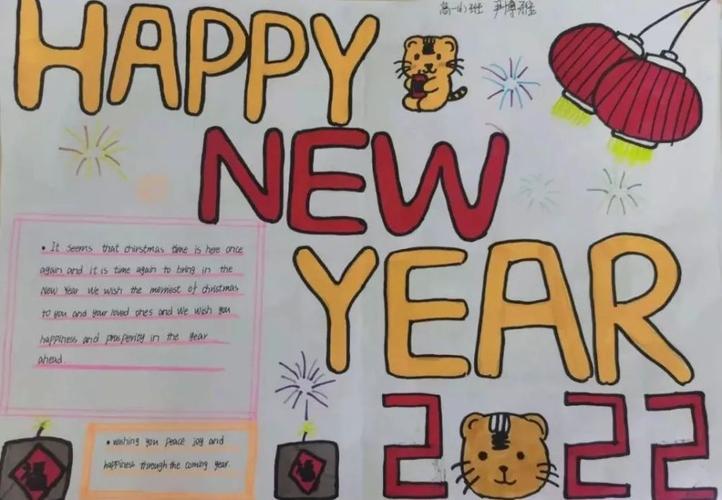 高一 班
HAPPY
NEW
YEAR
2 22
• It seems that chirstmas time is here once
again and it is time again to bring in the
New Year We wish the merriest of christmas
to you and your loved ones and We wish you
happiness and prosperity in the year
ahead.
• wishing you peace joy and
happiness through the coming year.
福
福